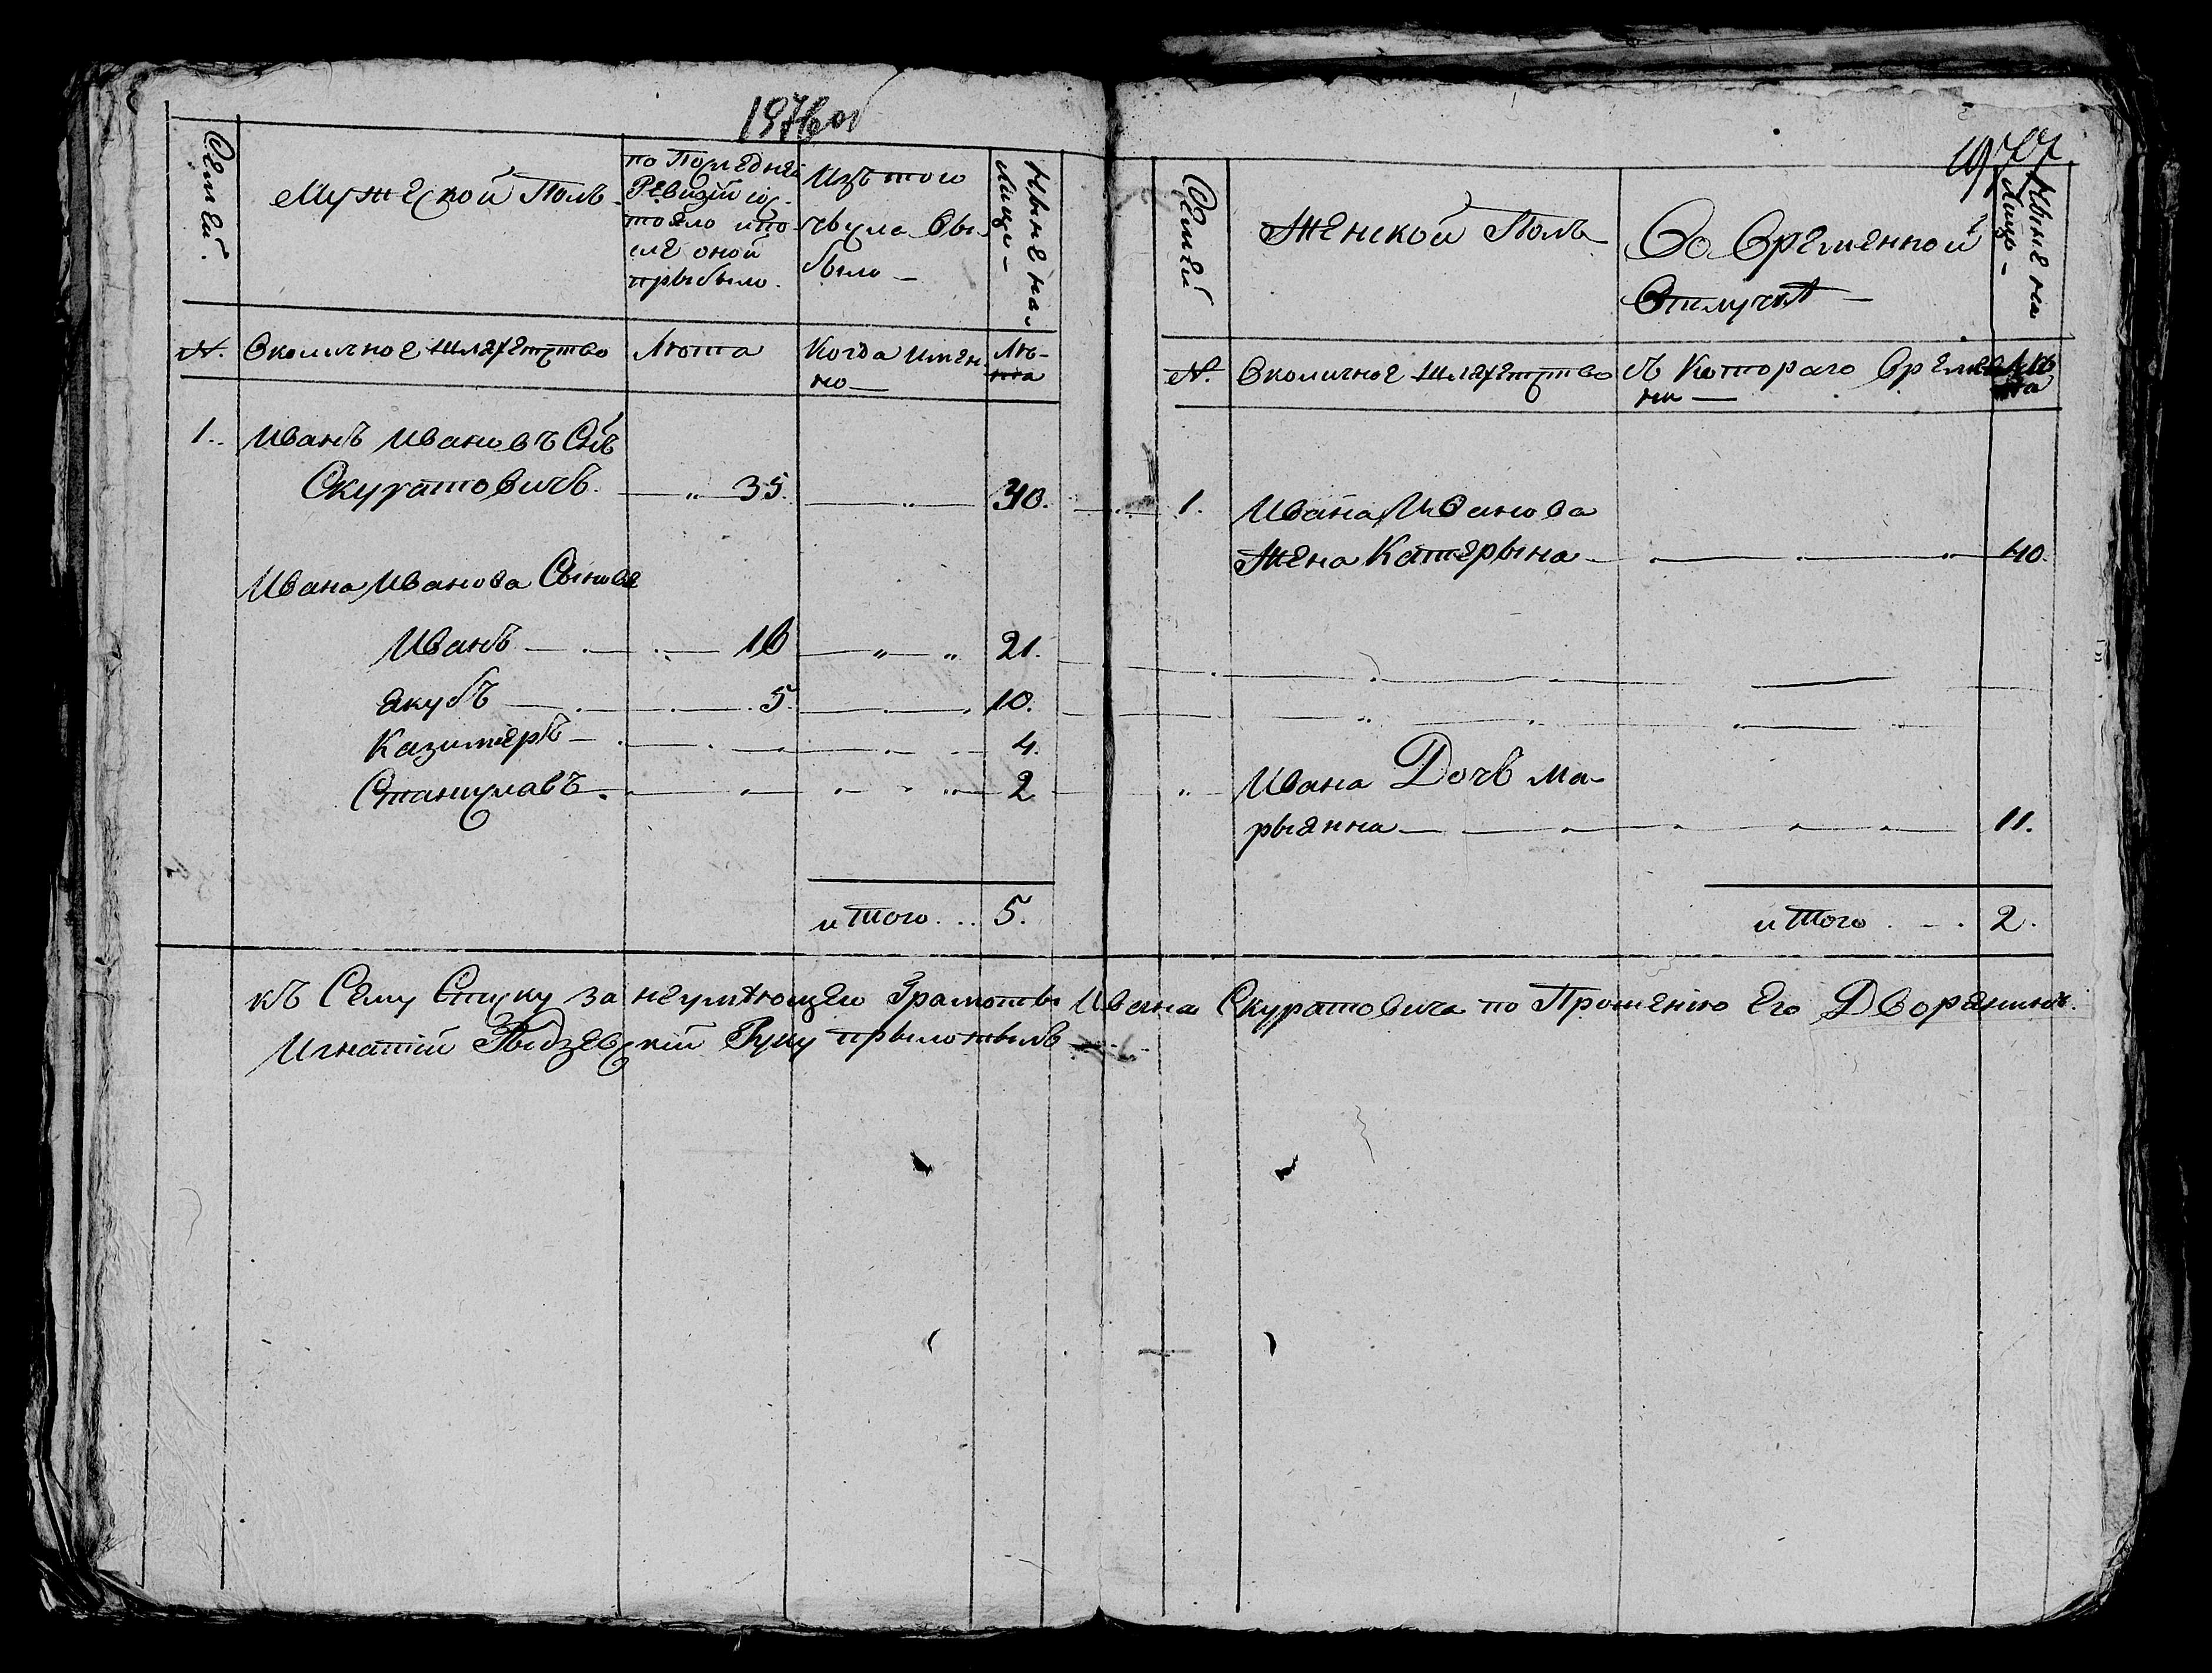 1976об
Семеи.
Мужескои Полъ
по Последнеи
Ревизіи сос-
тояло и по
сле оной
прыбыло.
Изъ того
числа Вы
было
Ныне на
лицо
№. Околичное Шляхетство
Лѣта
Когда имен
но
Лѣ-
та
1. Иванъ Ивановъ Снъ
Скуратовичъ. 35. 40.
Ивана Иванова Сынове
Иванъ 16 21.
Якубъ 5. 10.
Казимеръ 4.
Станиславъ. 2
итого 5.
1977
Семеи
Женской Полъ
Во Временной
Отлучкѣ
Ныне на
лицо
№. Околичное Шляхетство
Съ Котораго Време
ни
Лѣ
та
1. Ивана Иванова
Жена Катерына 40.
Ивана Дочь Ма-
рыянна 11.
итого 2.
къ Сему Списку за неумѣющего Грамоты Ивана Скуратовича по Прошенію Его Дворянинъ
Игнатій Руку прыложылъ